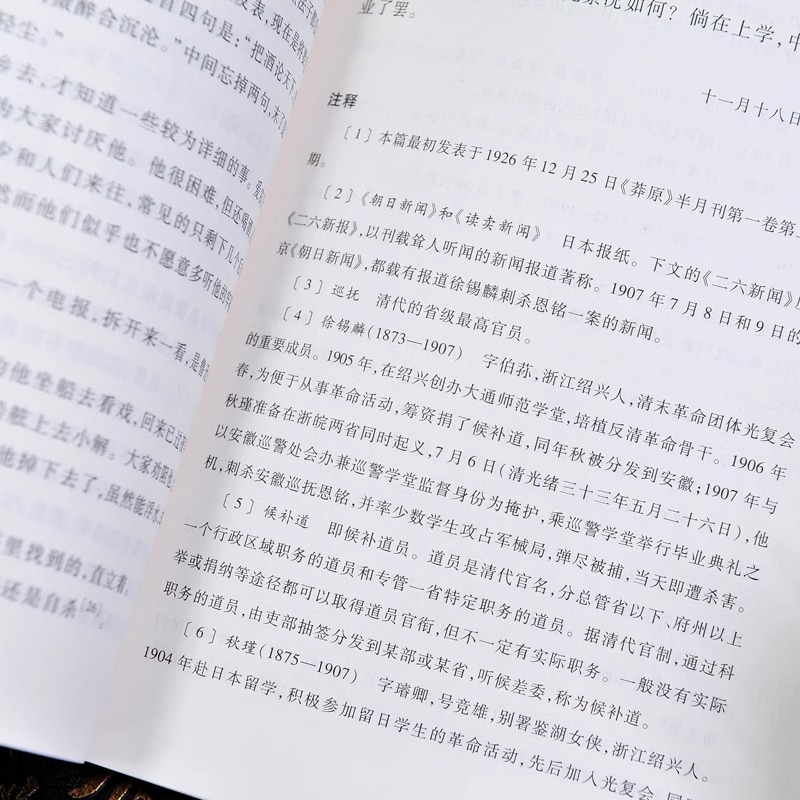 发表，现在是将
微醉合沉沦。”中间忘掉两句，末
首四句是：“把酒论天下
轻尘。”
乡去，才知道一些较为详细的事。
为大家讨厌他。他很困难，但还喝
少和人们来往，常见的只剩下几个
然而他们似乎也不愿意多听他的
一个电报，拆开来一看，是
的他坐船去看戏，回来已过
舷上去小解。大家劝阻
他掉下去了，虽然能浮水
里找到的，直立着。
还是自杀[26]。
况如何？倘在上学，中
业了罢。
十一月十八日
注释
〔1〕本篇最初发表于1926年12月25日《莽原》半月刊第一卷第
期。
〔2〕《朝日新闻》和《读卖新闻》 日本报纸。下文的《二六新闻》
《二六新报》，以刊载耸人听闻的新闻报道著称。1907年7月8日和9日的
京《朝日新闻》，都载有报道徐锡麟刺杀恩铭一案的新闻。
〔3〕巡抚 清代的省级最高官员。
〔4〕徐锡麟（1873—1907） 字伯荪，浙江绍兴人，清末革命团体光复会
的重要成员。1905年，在绍兴创办大通师范学堂，培植反清革命骨干。1906年
春，为便于从事革命活动，筹资捐了候补道，同年秋被分发到安徽；1907年与
秋瑾准备在浙皖两省同时起义，7月6日（清光绪三十三年五月二十六日），他
以安徽巡警处会办兼巡警学堂监督身份为掩护，乘巡警学堂举行毕业典礼之
机，刺杀安徽巡抚恩铭，并率少数学生攻占军械局，弹尽被捕，当天即遭杀害。
〔5〕候补道 即候补道员。道员是清代官名，分总管省以下、府州以上
一个行政区域职务的道员和专管一省特定职务的道员。据清代官制，通过科
举或捐纳等途径都可以取得道员官衔，但不一定有实际职务。一般没有实际
职务的道员，由吏部抽签分发到某部或某省，听候差委，称为候补道。
〔6〕秋瑾（1875—1907） 字璿卿，号竞雄，别署鉴湖女侠，浙江绍兴人。
1904年赴日本留学，积极参加留日学生的革命活动，先后加入光复会、同